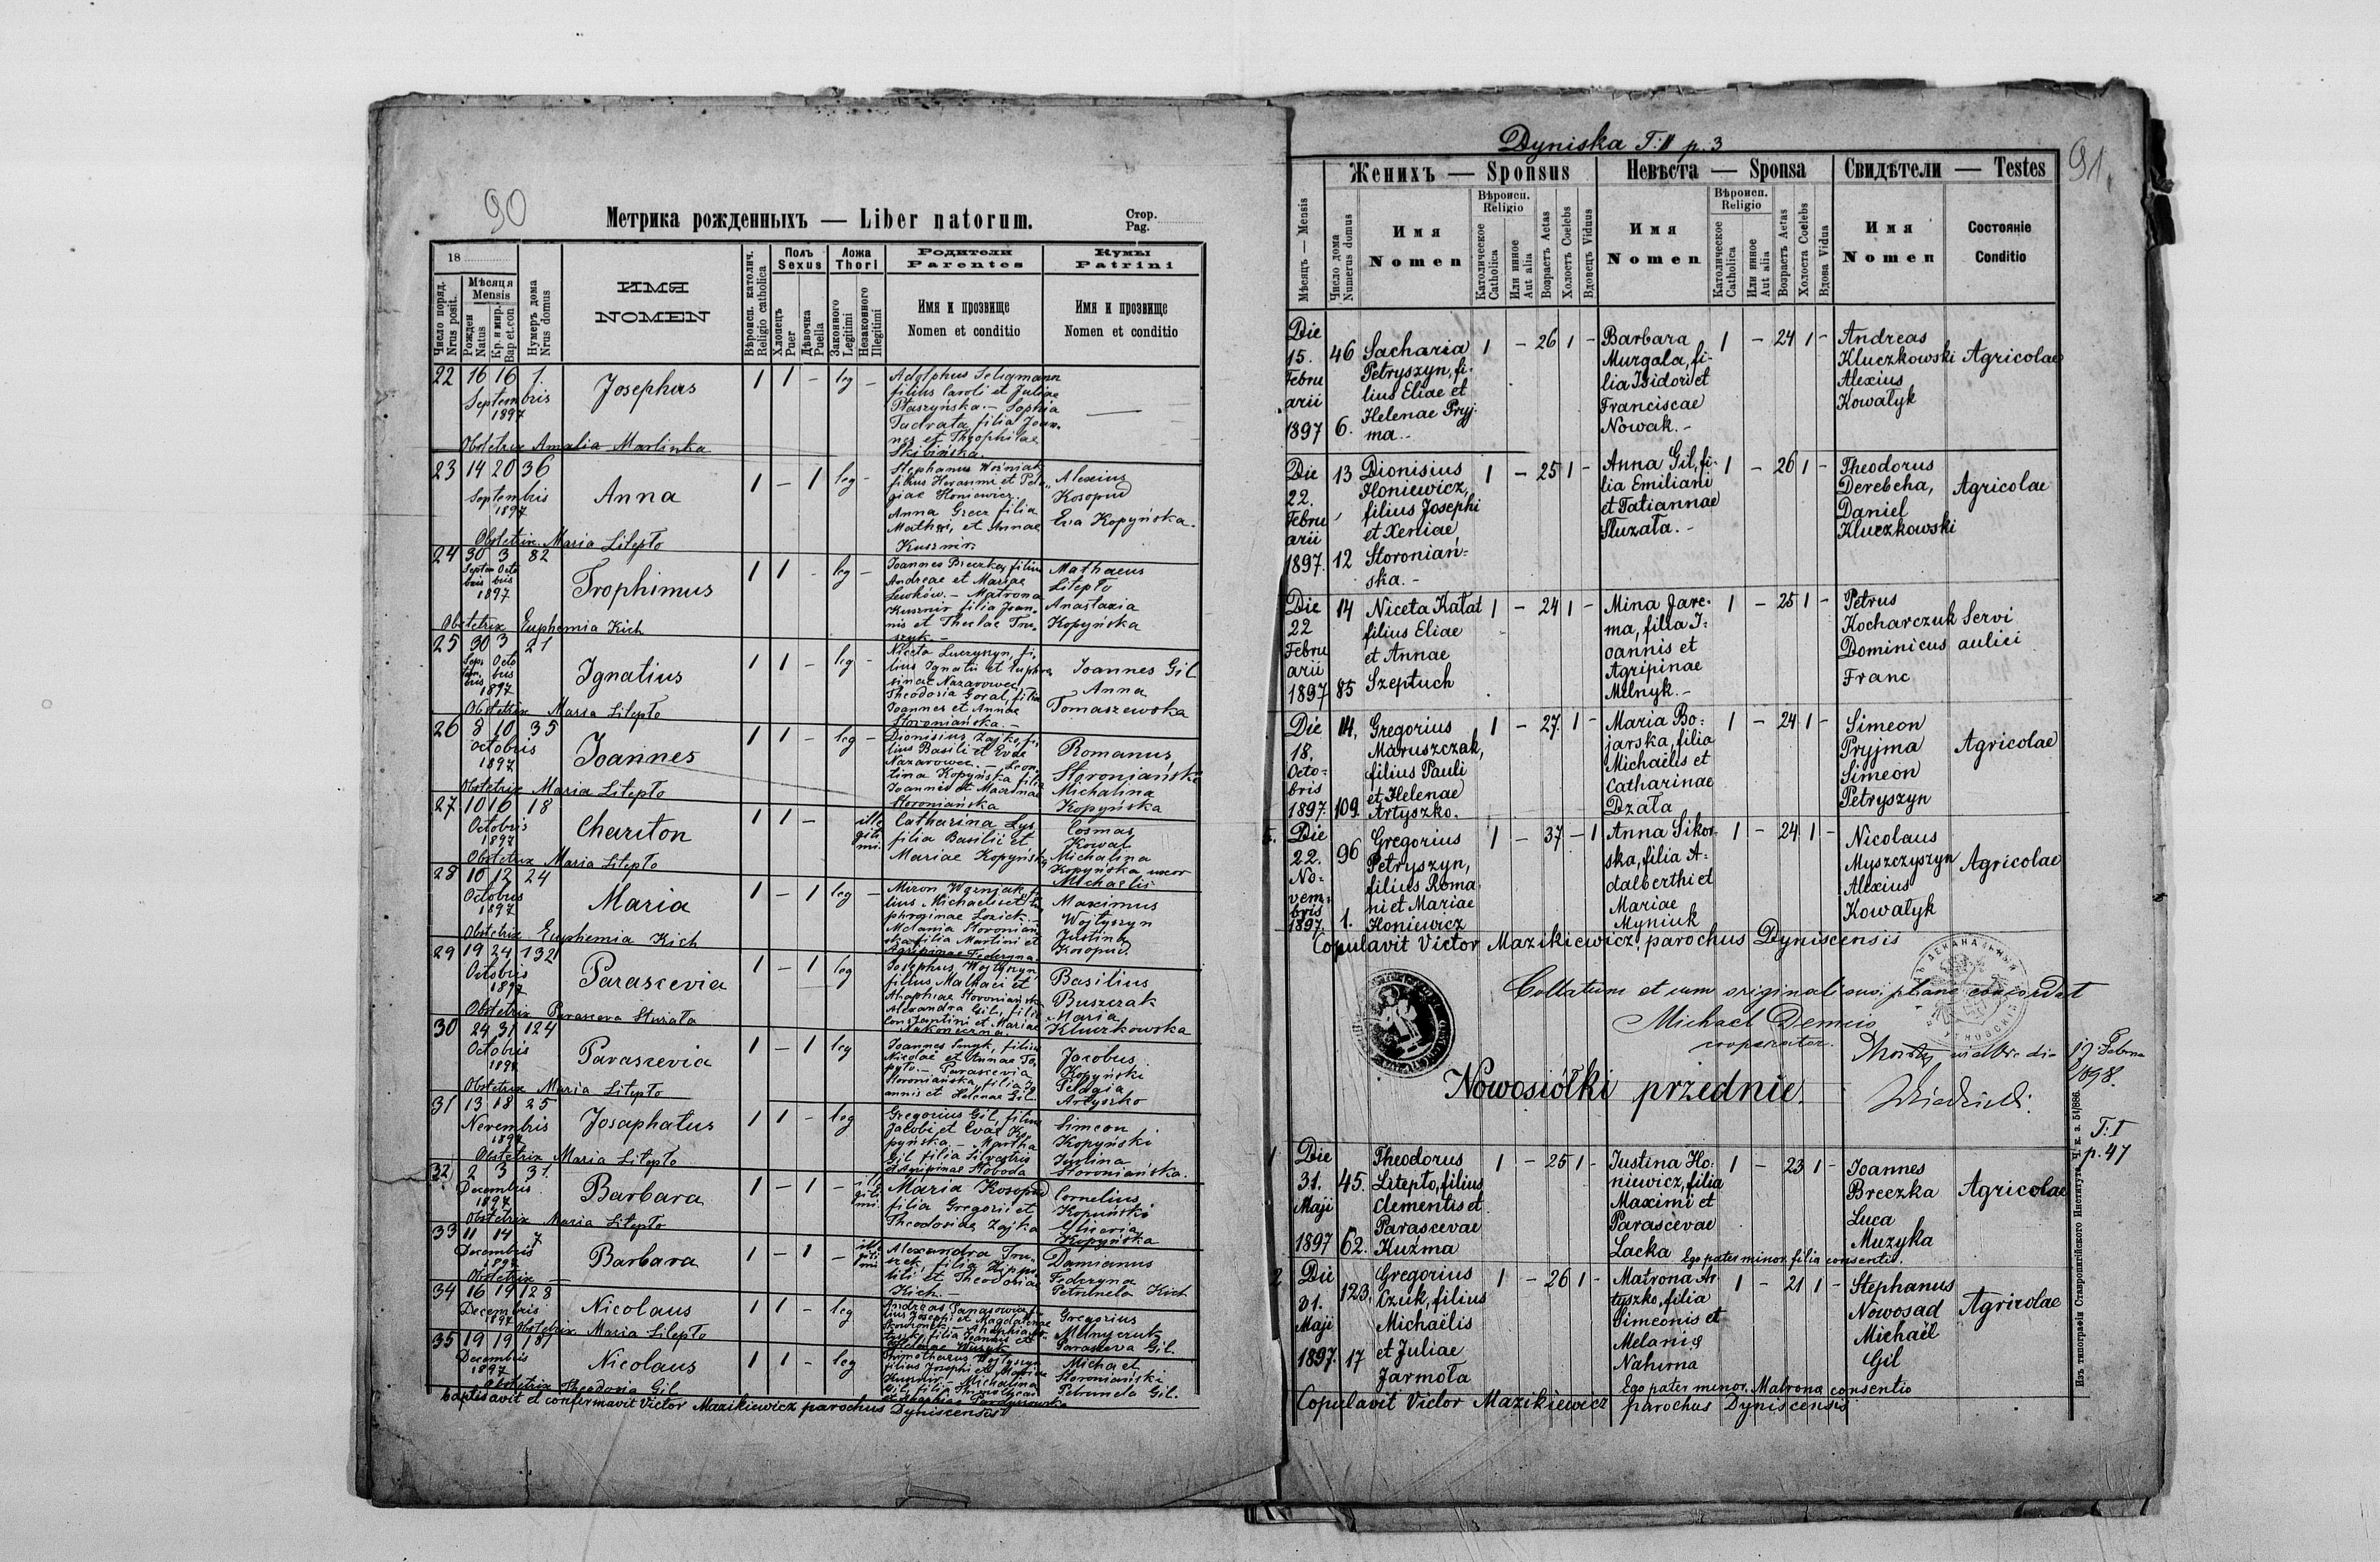 90
Метрика рожденныхъ — Liber natorum.
Стор.
Pag.
18
Число поряд.
Nrus posit.
Мѣсяця
Mensis
Рожден
Natus
Кр. и мир.
Bap et.con
Нумеръ дома
Nrus domus
ИМЯ
NOMEN
Вѣроисп. католич.
Religio catholica
Полъ
Sexus
Хлопецъ
Puer
Дѣвочка
Puella
Ложа
Thori
Законного
Legitimi
Незаконного
Illegitimi
Родители
Parentes
Имя и прозвище
Nomen et conditio
Кумы
Patrini
Имя и прозвище
Nomen et conditio
22 16 16 1. Josephus 1 1 – leg –
Septembris
1897
Adolphus Seligmann
filius Caroli et Juliae
Ptaszyńska. – Sophia
Tadrata filia Joan-
nes et Theophilae
Skibińska.
Obstetrix Amalia Marlinka
23 14 20 36 Anna 1 – 1 leg –
Septembris
1897
Stephanus Woźniak,
filius Herasimi et Pela-
giae Honiewicz.
Anna Grecz filia
Mathei, et Annae
Kusznir.
Alexius
Kosopud
Eva Kopyńska.
Obstetrix Maria Litepło
24 30 3 82 Trophimus 1 1 – leg –
Septem Octo
bris bris
1897
Joannes Breczka, filius
Andreae et Mariae
Lewków. – Matrona
Kusznir filia Joan-
nis et Theclae Tru-
szyk –
Mathaeus
Litepło
Anastazia
Kopyńska
Obstetrix Euphemia Kich
25 30 3 21 Ignatius 1 1 – leg –
1897
filius Ignatii et Euphro
sinae Nazarowec
Theodosia Goral, filia
Joannes et Annae
Storoniańska. –
Joannes Gil
Anna
Tomaszewska
Obstetrix Maria Litepło
26 8 10 35 Joannes 1 1 – leg –
Octobris
1897
Dionisius Zajko, fi-
lius Basili et Evae
Nazarowec. – Leon-
tina Kopyńska filia
Joannes et Maximae
Storoniańska
Romanus
Storoniański
Michalina
Kopyńska
Obstetrix Maria Litepło
27 10 16 18 Chariton 1 1 –
Octobris
1897
ille
giti
mi.
Catharina Lys
filia Basilii et
Mariae Kopyńska
Cosmas
Kowal
Michalina
Kopyńska uxor
Michaelis
Obstetrix Maria Litepło
28 10 12 24 Maria 1 – 1 leg –
Octobris
1897
Miron Wozniak, fi-
lius Michaelis et Eu-
phroginae Lozick. –
Melania Storonian-
ska filia Martini et
Agripinae Federyna
Maximus
Wojtyszyn
Justina
Kosopud.
Obstetrix Euphemia Kich
29 19 24 132 Parascevia 1 – 1 leg
Octobris
1897
Josephus Wojtyszyn,
filius Malhaei et
Ahaphiae Storoniańska
Alexandra Gil, filia
Constantini et Mariae
Basilius
Buszczak
Maria
Kluczkowska
Obstetrix Parasceva Sturała
30 24 31 124 Parascevia 1 – 1 leg
Octobris
1897
Joannes Smyk, filius
Nicolae et Annae
Parascevia
Storoniańska, filia Jo-
annis et Helenae Gil.
Jacobus
Kopyński
Pelagia
Artyszko
Obstetrix Maria Litepło
31 13 18 25 Josaphatus 1 1 – leg
Novembris
1897
Gregorius Gil, filius
Jacobi et Evae Ko-
pyńska. – Martha
Gil filia Silvestris
et Agripinae Słoboda
Simeon
Kopyński
Justina
Storoniańska.
Obstetrix Maria Litepło
32 2 3 31. Barbara 1 – 1 –
Decembris
1897
ille
giti
mi.
Maria Kosopud
filia Gregorii et
Theodosiae Zajka
Cornelius
Kopyński
Gliceria
Kopyńska
Obstetrix Maria Litepło
33 11 14 7 Barbara 1 – 1 –
Decembris
1897
ille
giti
mi
Alexandra Tru-
szek, filia Hippo-
liti et Theodosiae
Kich. –
Damianus
Federyna
Petrunela Kich
Obstetrix —
34 16 19 128 Nicolaus 1 1 – leg
Decembris
1897
Andreas Panasowiec, fi-
lius Josephi et Magdalenae
Gregorius
Melnyczuk
Parasceva Gil.
Obstetrix Maria Litepło
35 19 19 181 Nicolaus 1 1 – leg
Decembris
1897
Thimotheus Wojtyszyn
filius Josephi et Mariae
Kusznir. – Michalina
Gil, filia
Michael
Storoniański
Petrunela Gil.
Obstetrix Theodosia Gil
baptisavit et confirmavit Victor Mazikiewicz parochus Dyniscensis
Dyniska T: II p. 3
91.
Мѣсяцъ — Mensis
Число дома
Numerus domus
Женихъ — Sponsus
Имя
Nomen
Вѣроисп.
Religio
Католическое
Catholica
Или инное
Aut alia
Возрастъ Aetas
Холостъ Coelebs
Вдовецъ Viduus
Невѣста — Sponsa
Имя
Nomen
Вѣроисп.
Religio
Католическое
Catholica
Или инное
Aut alia
Возрастъ Aetas
Холоста Coelebs
Вдова Vidua
Свидѣтели — Testes
Имя
Nomen
Состоянiе
Conditio
Die
15.
Febru
arii
1897
46
6.
Sacharia
Petryszyn, fi-
lius Eliae et
Helenae Pryj-
ma. –
1 – 26 1 –
Barbara
Murgala, fi-
lia Isidori et
Franciscae
Nowak. –
1 – 24 1 –
Andreas
Kluczkowski
Alexius
Kowalyk
Agricolae
Die
22.
Febru
arii
1897.
13
12
Dionisius
Honiewicz,
filius Josephi
et Xeniae
Storoniań-
ska. –
1 – 25 1 –
Anna Gil, fi-
lia Emiliani
et Tatiannae
Sluzała. –
1 – 26 1 –
Theodorus
Derebcha,
Daniel
Kluczkowski
Agricolae
Die
22
Febru
arii
1897
14
85
Niceta Kałat
filius Eliae
et Annae
Szeptuch
1 – 24 1 –
Mina Jare-
ma, filia I-
oannis et
Agripinae
Melnyk. –
1 – 25 1 –
Petrus
Kocharczuk
Dominicus
Franc
Servi
aulici
Die
18.
Octo-
bris
1897.
14,
109.
Gregorius
Maruszczak,
filius Pauli
et Helenae
Artyszko.
1 – 27. 1 –
Maria Bo-
jarska, filia
Michaëlis et
Catharinae
Dzała
1 – 24 1 –
Simeon
Pryjma
Simeon
Petryszyn
Agricolae
5.
Die
22.
No-
vem-
bris
1897.
96
1.
Gregorius
Petryszyn,
filius Roma-
ni et Mariae
Honiewicz
1 – 37 – 1
Anna Sikor-
ska, filia A-
dalberthi et
Mariae
Myniuk
1 – 24 1 –
Nicolaus
Myszczyszyn
Alexius
Kowalyk
Agricolae
Copulavit Victor Mazikiewicz parochus Dyniscensis
Collatum et cum originali suo plane concordat
Michael Demcio
cooperator.
Nowosiółki przednie.
19 Febru
1898.
T: I
p. 47
1
Die
31.
Maji
1897
45.
62.
Theodorus
Litepło, filius
Clementis et
Parascevae
Kuźma
1 – 25 1 –
Iustina Ho-
niewicz, filia
Maximi et
Parascevae
Lacka
Ego pater minor. filia consentio.
1 – 23 1 –
Ioannes
Breczka
Luca
Muzyka
Agricolae
2
Die
31.
Maji
1897.
123.
17
Gregorius
Czuk, filius
Michaëlis
et Juliae
Jarmoła
1 – 26 1 –
Matrona Ar-
tyszko, filia
Simeonis et
Melaniae
Nahirna
Ego pater minor. Matrona consentio
1 – 21 1 –
Stephanus
Nowosad
Michaël
Gil
Agricolae
Copulavit Victor Mazikiewicz parochus Dyniscensis
Изъ типографiи Ставропигiйского Института Ч. к. з. 51/886.